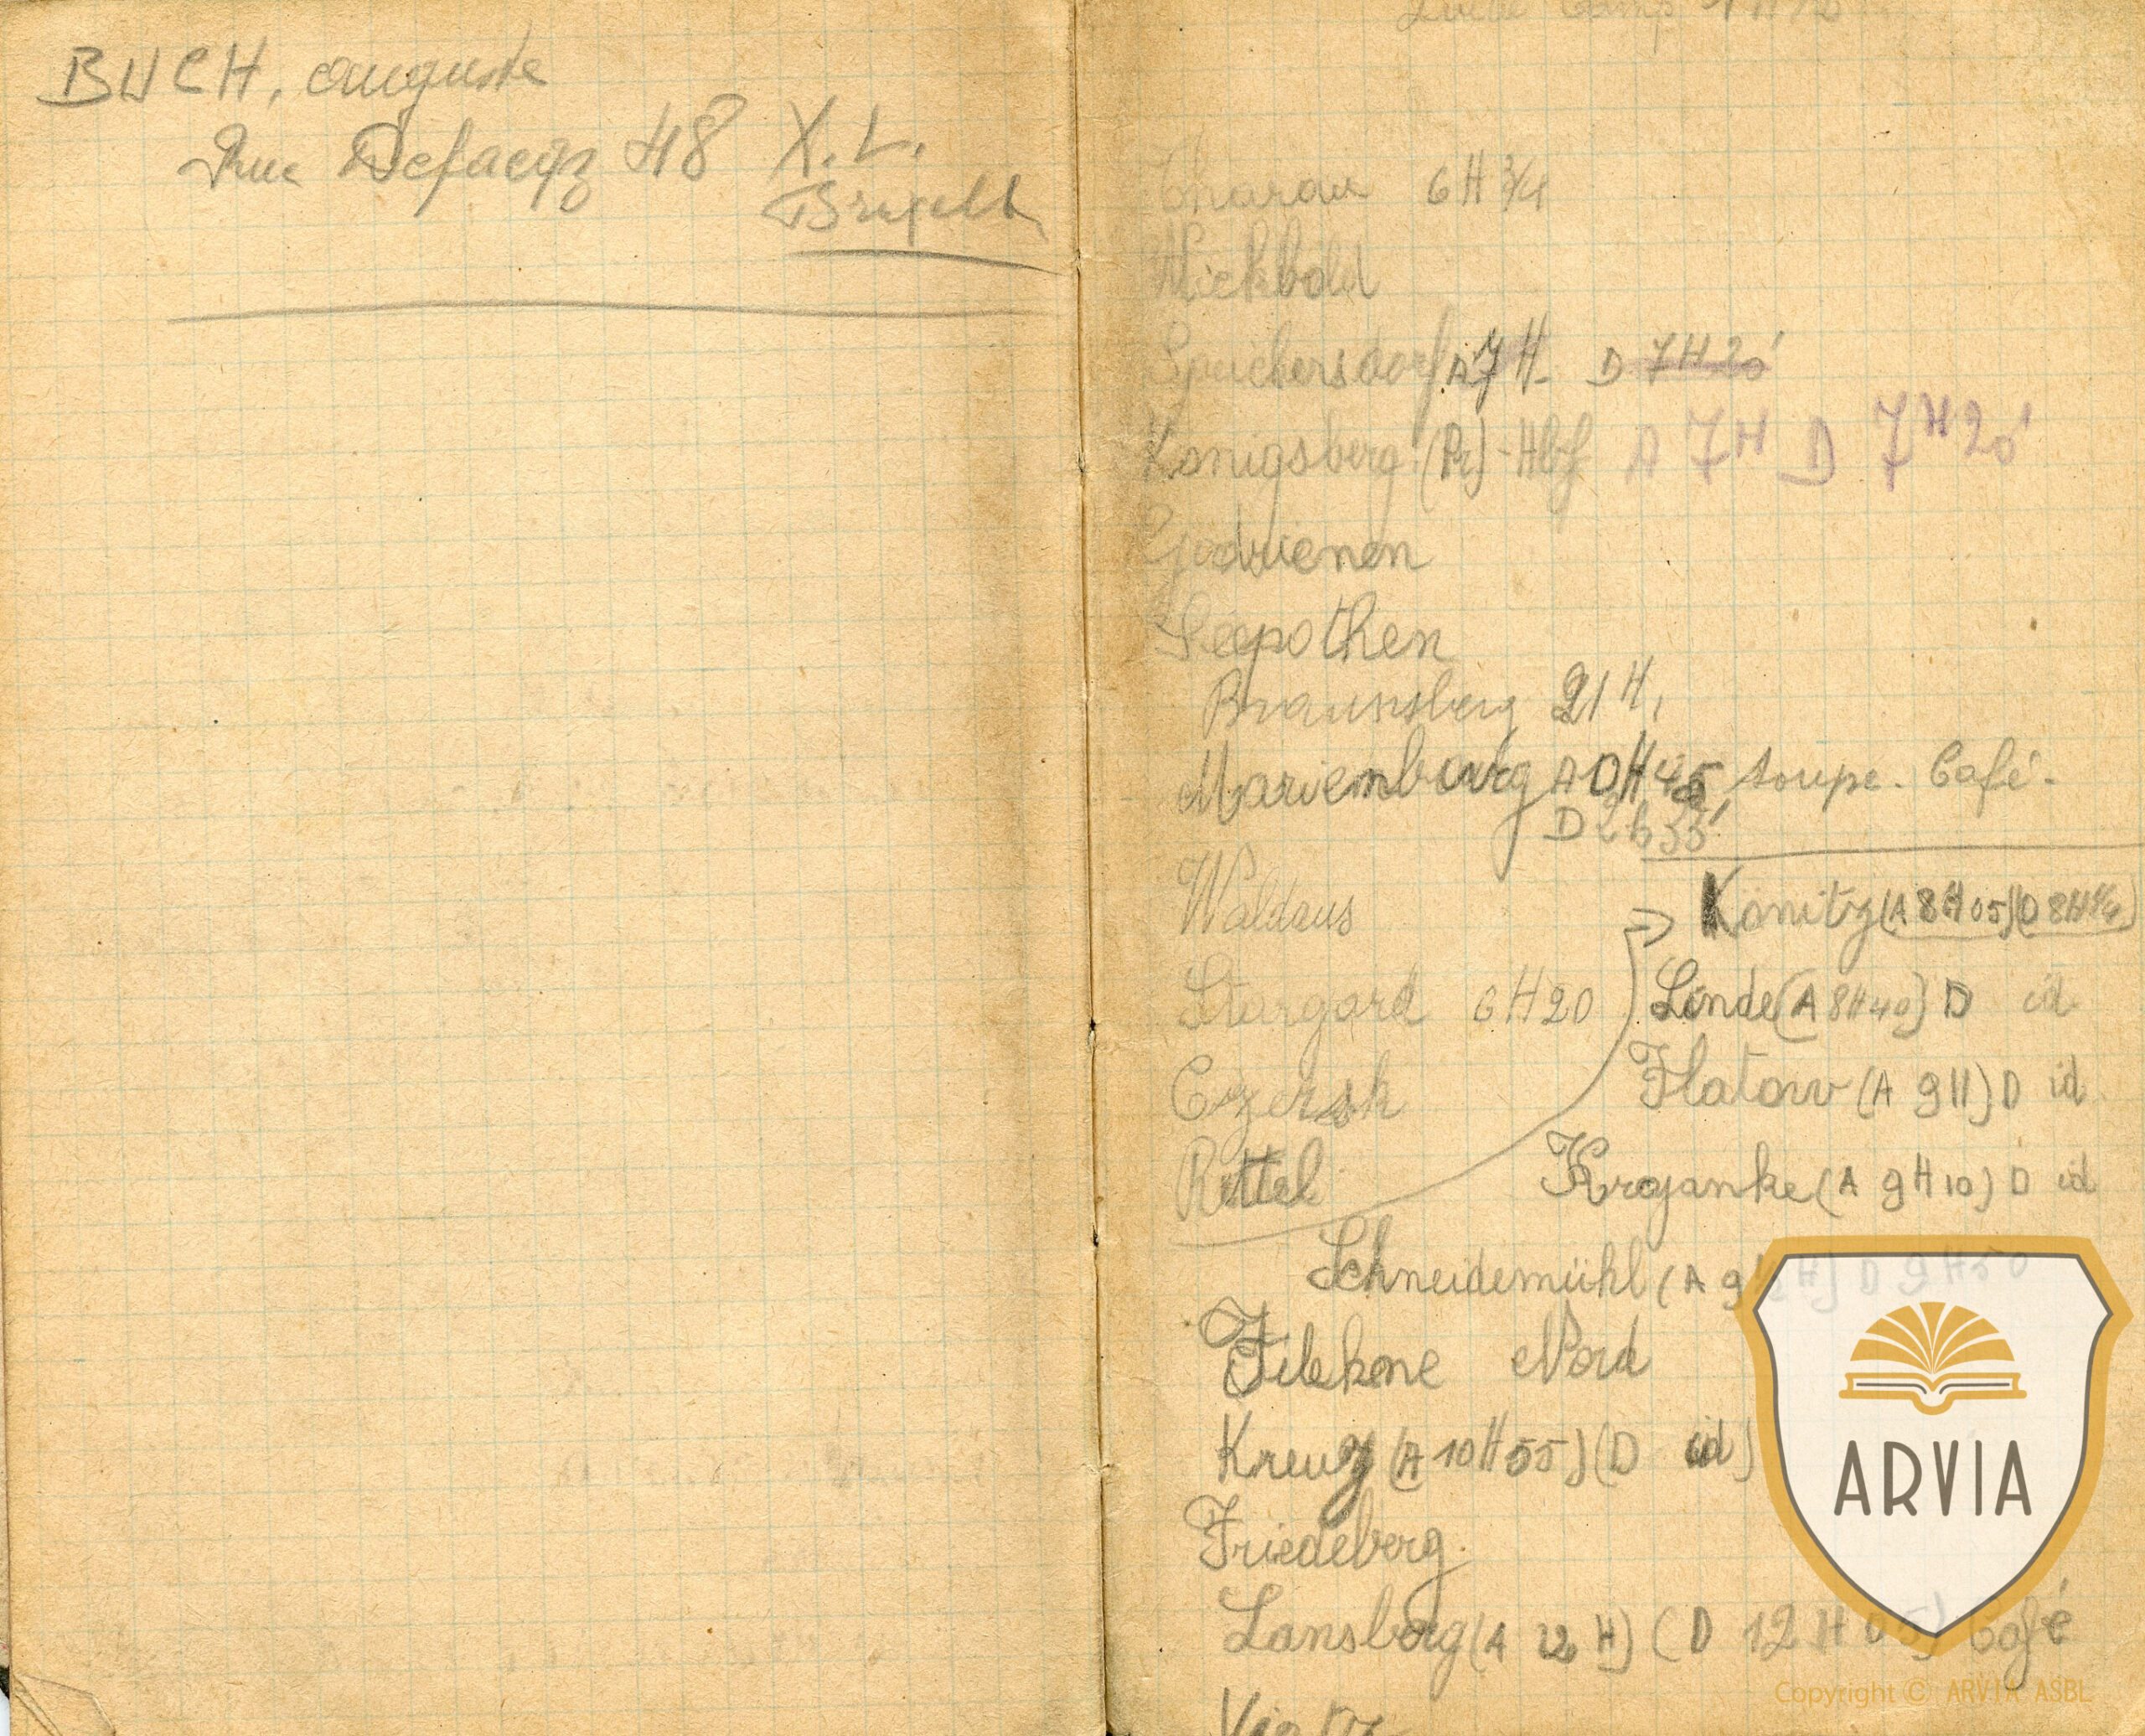 BUCH, auguste
Rue Defacqz 48 X.L.
Bruxelles
Camp 1H
Tharau 6H 3/4
Wickbold
Speichersdorf A 7H - D 7H20'
Konigsberg (Pr) - Hbf A 7H D 7H20'
Godrienen
Seepothen
Braunsberg 21H,
Marienburg A 0H45 soupe. Café.
D 2h35'
Waldaus
Konitz (A 8H05) (D 8H1/4)
Stargard 6H20
Linde (A 8H40) D id
Czersk
Flatow (A 9H) D id
Rittel
Krojanke (A 9H10) D id
Schneidemühl (A 9 1/2H) D 9H50
Filehne Nord
Kreuz (A 10H55) (D id)
Friedeberg.
Lansberg (A 12 H) (D 12H05) Café
Vietz
ARVIA
Copyright © ARVIA ASBL